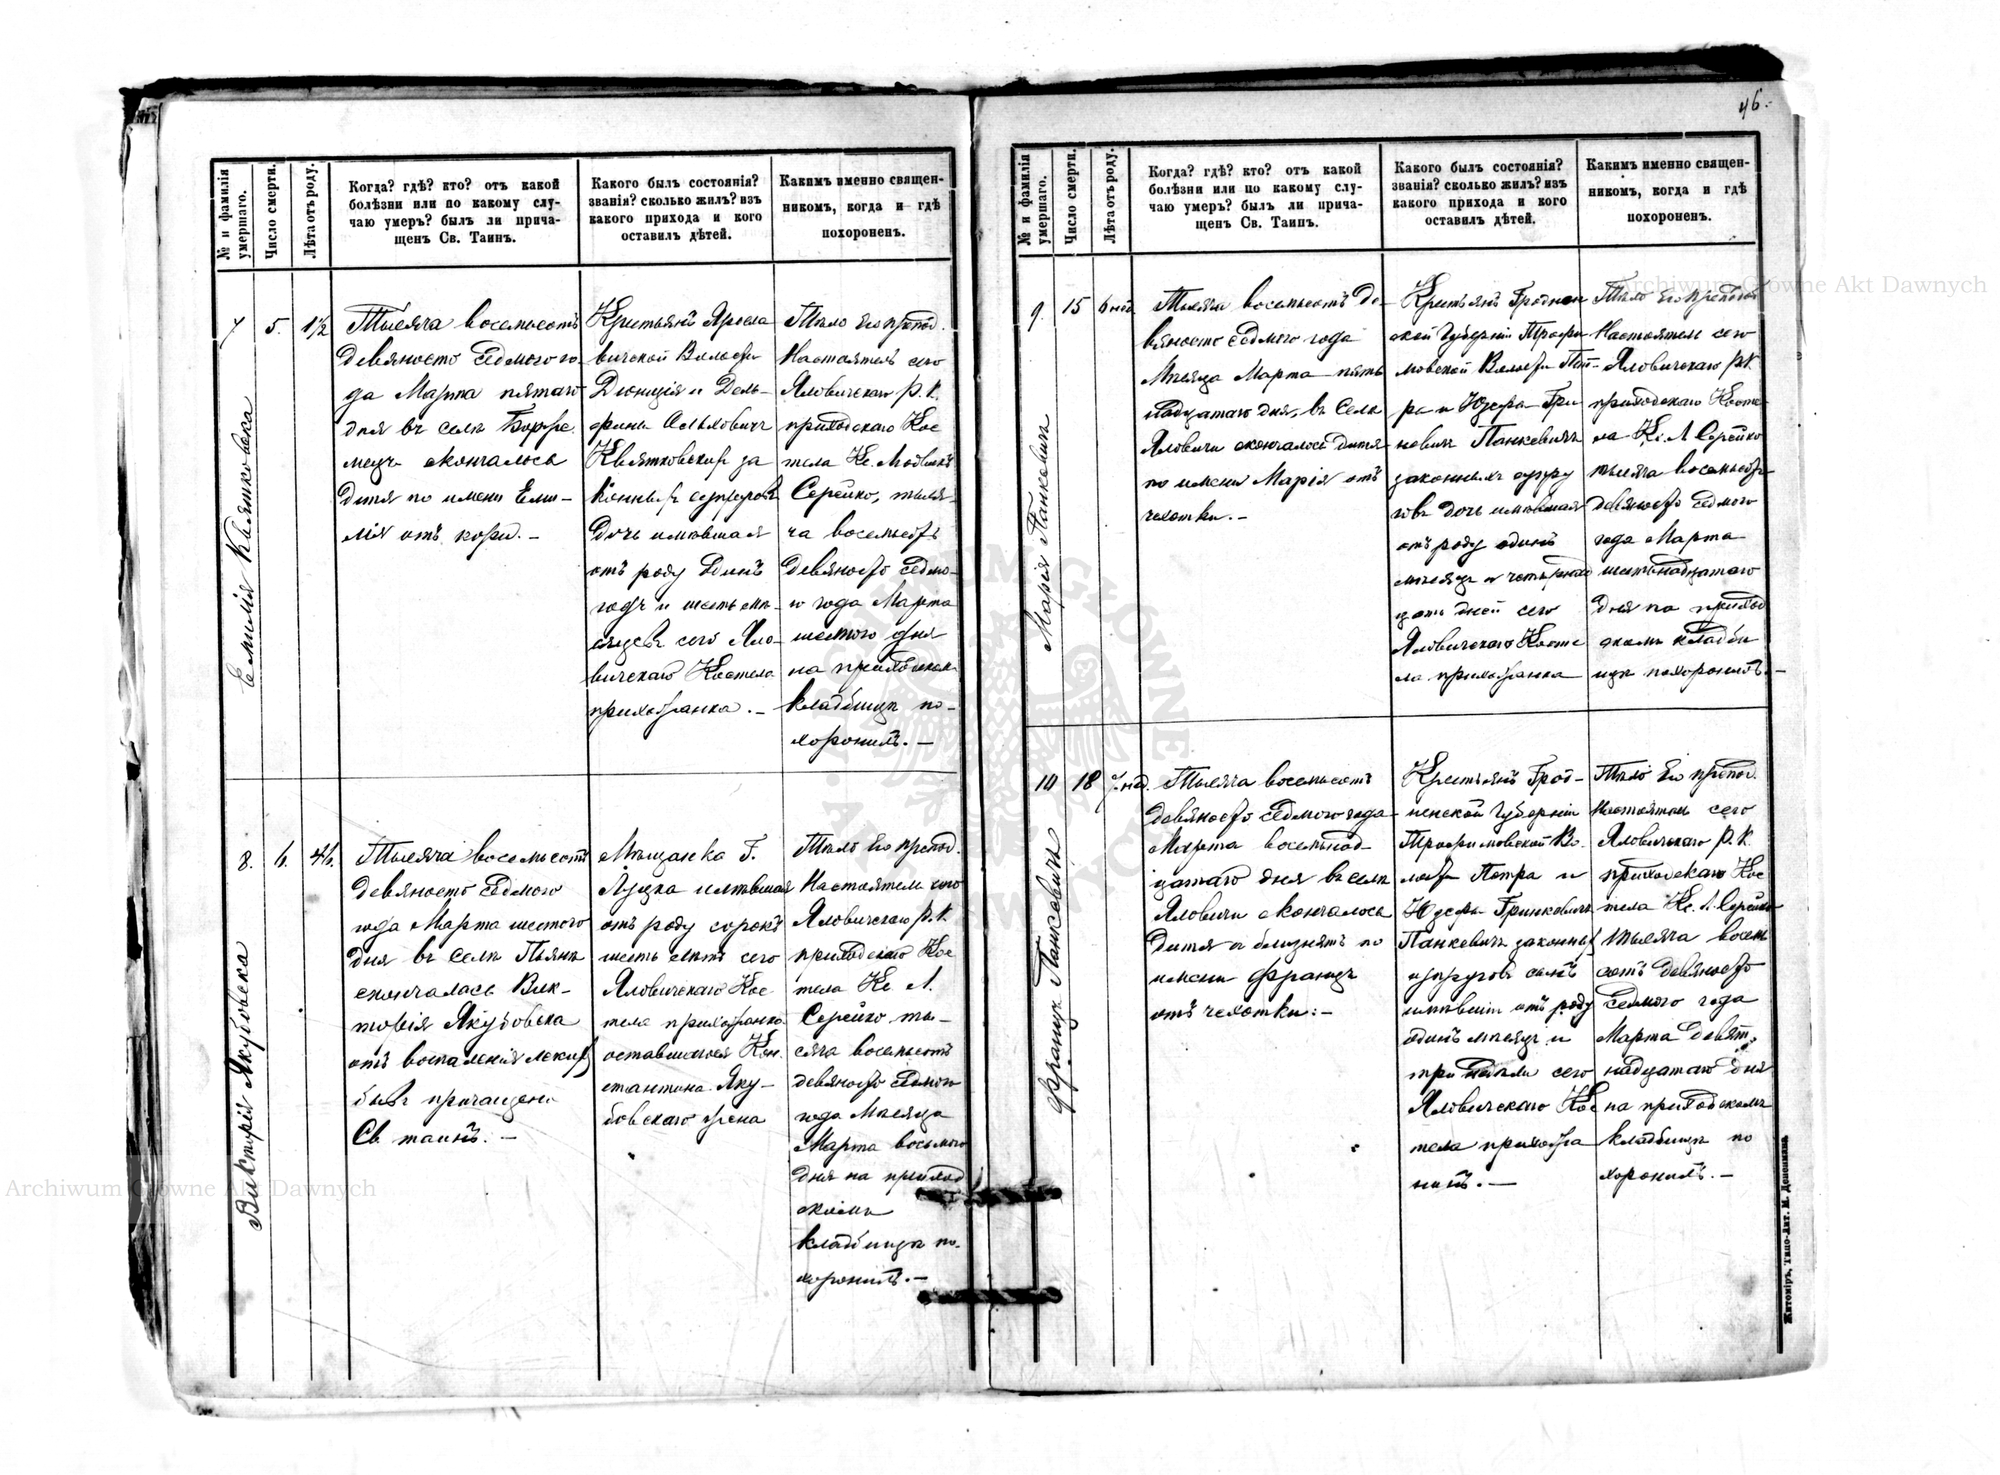 46.
№ и фамилія умершаго.
Число смерти.
Лѣта отъ роду.
Когда? гдѣ? кто? отъ какой
болѣзни или по какому слу-
чаю умеръ? былъ ли прича-
щенъ Св. Таинъ.
Какого былъ состоянія?
званія? сколько жилъ? изъ
какого прихода и кого
оставилъ дѣтей.
Каким именно священ-
никомъ, когда и гдѣ
похороненъ.
7
Емилія Квятковска
5.
1½
Тысяча восемьсотъ
девяносто седмого го-
да Марта пятаго
дня въ селѣ
скончалось
дитя по имени Еми-
лія отъ кори. —
Крестьянъ Яросла
вичской Волости
Діонизія и
Квятковскихъ за
конныхъ супруговъ
дочь имѣвшая
отъ роду одинъ
годъ и шесть мѣ-
сяцевъ сего Яло-
вичскаго Костела
прихожанка. —
Тѣло Ея препод.
Настоятель сего
Яловичскаго Р. К.
приходскаго Кос
тела Кс. Людвикъ
Серейко, тыся-
ча восемьсотъ
девяносто седмо-
го года Марта
шестого дня
на приходскомъ
кладбищѣ по-
хоронилъ. —
8.
Викторія Якубовска
6.
46.
Тысяча восемьсотъ
девяносто седмого
года Марта шестого
дня въ селѣ Пьянѣ
скончалась Вик-
торія Якубовска
отъ воспаленія легкихъ
бывъ причащена
Св таинъ. —
Мѣщанка Г.
Луцка имѣвшая
отъ роду сорокъ
шесть лѣтъ сего
Яловичскаго Кос
тела прихожанка
оставшагося Кон.
стантина Яку-
бовскаго жена
Тѣло Ея препод.
Настоятель сего
Яловичскаго Р. К.
приходскаго Кос
тела Кс Л.
Серейко ты-
сяча восемьсотъ
девяносто седмого
года Мѣсяца
Марта восьмого
дня на приход
скомъ
кладбищѣ по-
хоронилъ. —
№ и фамилія умершаго.
Число смерти.
Лѣта отъ роду.
Когда? гдѣ? кто? отъ какой
болѣзни или по какому слу-
чаю умеръ? былъ ли прича-
щенъ Св. Таинъ.
Какого былъ состоянія?
званія? сколько жилъ? изъ
какого прихода и кого
оставилъ дѣтей.
Каким именно священ-
никомъ, когда и гдѣ
похороненъ.
9.
Марія Панкевичъ
15
6 нед
Тысяча восемьсотъ де-
вяносто седмого года
Мѣсяца Марта пять
надцатаго дня, въ селѣ
Яловичи скончалось дитя
по имени Марія отъ
чахотки. —
Крестьянъ Гроднен
ской Губерніи Трофи
мовской Волости Пет-
ра и Юзефы Гри
Панкевичъ
законныхъ супру
говъ дочь имѣвшая
отъ роду одинъ
мѣсяцъ и четырнад
цать дней сего
Яловичскаго Косте
ла прихожанка
Тѣло Ея препод
Настоятель сего
Яловичскаго Р.К.
приходскаго Косте-
ла Кс. Л Серейко
тысяча восемьсотъ
девяносто седмого
года Марта
шестьнадцатаго
дня на приход
скомъ кладби
щѣ похоронилъ. —
10
Францъ Панкевичъ
18
7. нед.
Тысяча восемьсотъ
девяносто седмого года
Марта восемьнад-
цатаго дня въ селѣ
Яловичи скончалось
дитя съ близнятъ по
имени Францъ
отъ чахотки: —
Крестьянъ Грод-
ненской Губерніи
Трофимовской Во-
лости Петра и
Юзефы Гринкевичъ
Панкевичъ законныхъ
супруговъ сынъ
имѣвшій отъ роду
одинъ мѣсяцъ и
три недѣли сего
Яловичскаго Кос
тела прихожа
нинъ. —
Тѣло Его препод.
Настоятель сего
Яловичскаго Р. К.
приходскаго Кос
тела Кс. Л. Серейко
тысяча восемь
сотъ девяносто
седмого года
Марта девят.
надцатаго дня
на приходскомъ
кладбищѣ по
хоронилъ. —
Житоміръ, Типо-Лит. М. Дененмана
Archiwum Główne Akt Dawnych
Archiwum Główne Akt Dawnych